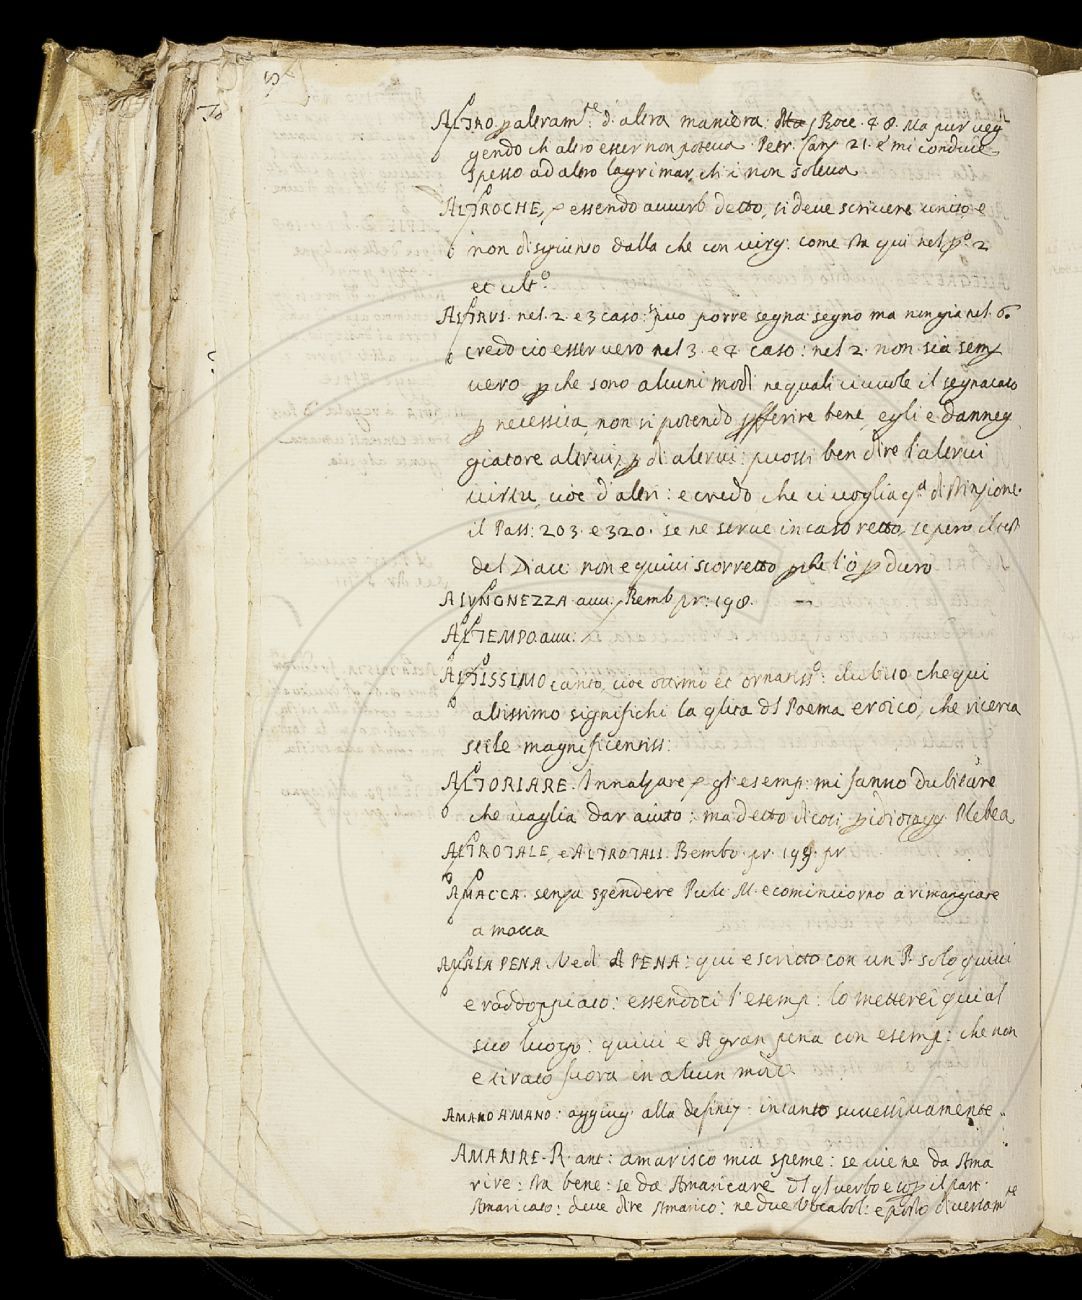 ALTRO p altram.te: d'altra maniera: Bocc. 48. Ma pur veg
gendo ch'altro esser non poteva. Petr. Canz. 21. e mi conduce
spesso ad altro lagrimar, ch'i non soleva
ALTROCHE, p essendo avverb detto, si deve scrivere unito, e
non disgiunto dalla che con virg: come sta qui nel po 2
et ult.o
ALTRUI. nel. 2. e 3 caso: si può porre segna: segno ma non già nel. 6.
credo cio esser vero nel 3. e 4. caso: nel 2. non sia semp
vero, p che sono alcuni modi ne quali ci vuole il segnacaso
p necessita, non si potendo pfferire bene, egli e danneg
giatore altrui, p di altrui: puossi ben dire l'altrui
virtu, cioè d'altri: e credo, che ci voglia q.a distinzione.
il Pass: 203. e 320. se ne serve in caso retto, se pero il test
del Diaci non e quivi scorretto, p che l'ò p duro
ALUNGNEZZA avv: Bemb pr: 198.
ALTEMPO avv:
ALTISSIMO canto, cioè ottimo et ornatiss.o: dubito che qui
altissimo significhi la qlita dl Poema eroico, che ricerca
stile magnificentiss:
ALTORIARE. Innalzare p gl'esemp: mi fanno dubitare
che vaglia dar aiuto: ma detto di così p idiotagg Plebea
ALTROTALE, e ALTROTALI. Bembo. pr. 199. pr
AMACCA. senza spendere Pulc. M. e cominciorno a rimangiare
a macca
AMALA PENA. Vedi A PENA: qui e scritto con un P. solo quivi
e raddoppiato: essendoci l'esemp: lo metterei qui al
suo luogo: quivi e A gran pena con esemp: che non
e tirato fuora in alcun modo
AMANO AMANO: aggiug alla definiz: intanto successivamente.
AMARIRE. R. ant: amarisco mia speme: se viene da Ama
rire: sta bene: se da Amaricare dl ql verbo e il part.
Amaricato: deve dire Amarico: ne due Vocabol: e posto diversam.te